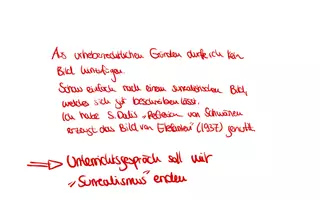 Aus urheberrechtlichen Gründen durfte ich kein
Bild hinzufügen.
Schau einfach nach einem surrealistischen Bild,
welches sich gut beschreiben lässt.
Ich habe S. Dalís "Reflexion von Schwänen
erzeugt das Bild von Elefanten" (1937) genutzt.
⇒ Unterrichtsgespräch soll mit
"Surrealismus" enden